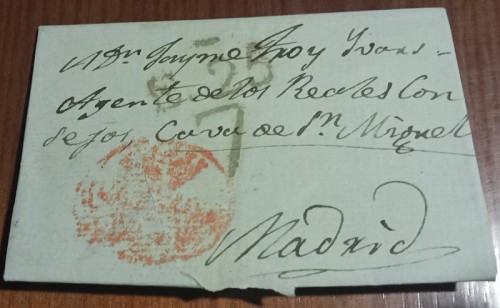 A Dn. Jayme Froy Yvars =
Agente de los Reales Con
sejos, Cava de Sn. Miguel
Madrid